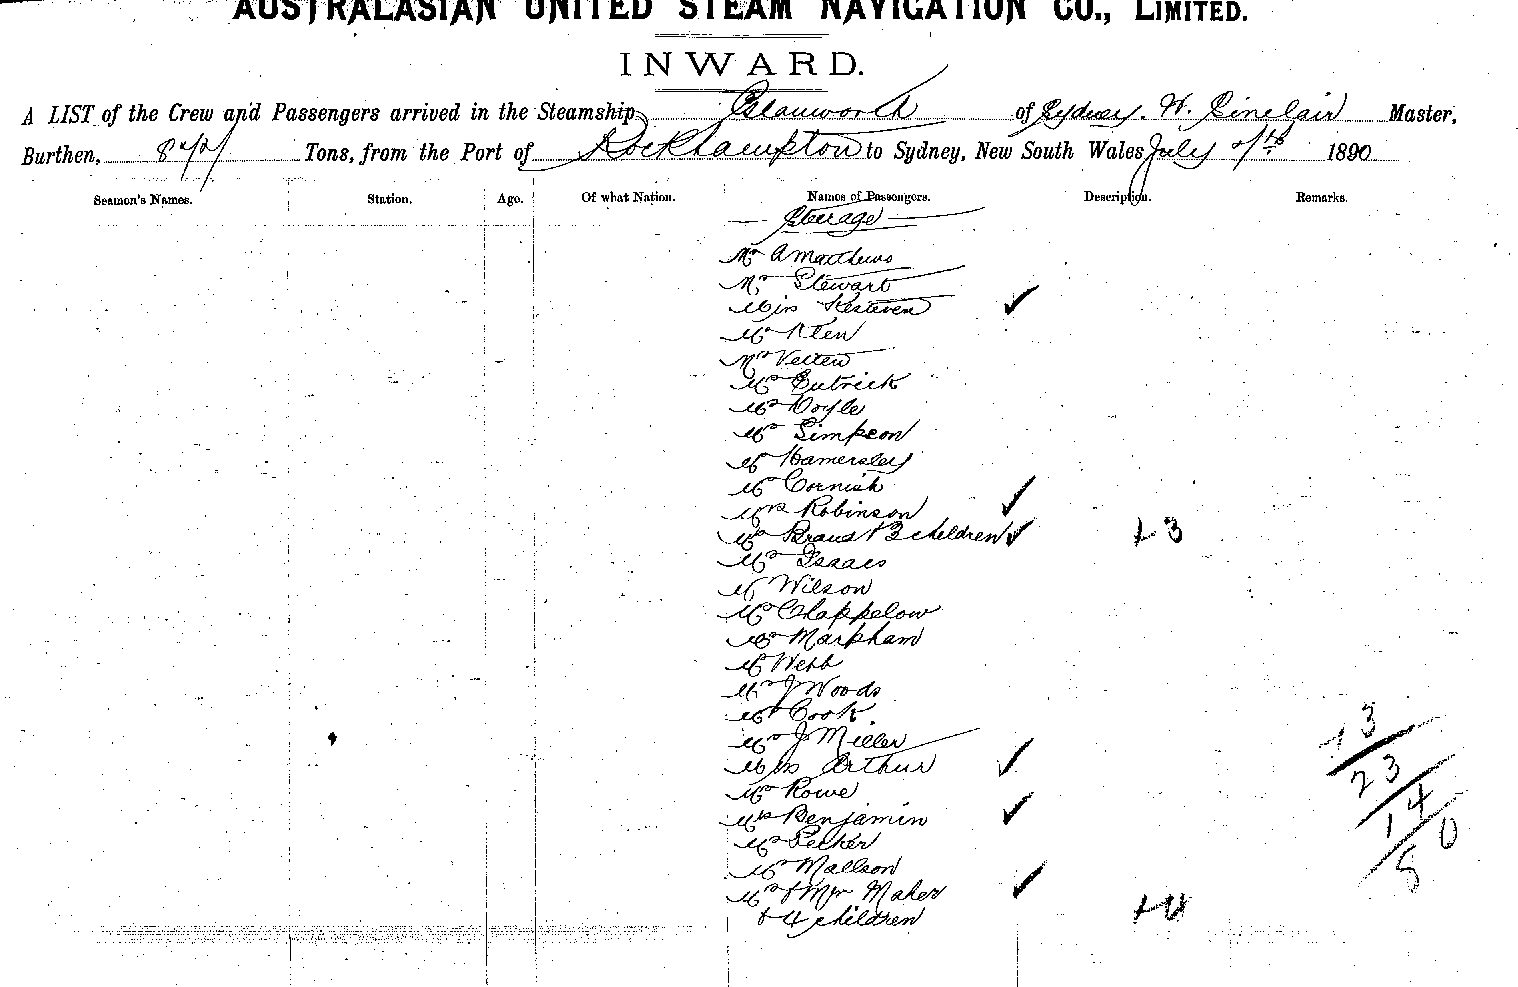 AUSTRALASIAN UNITED STEAM NAVIGATION CO., LIMITED.
INWARD.
A LIST of the Crew and Passengers arrived in the Steamship Glanworth of Sydney. W. Sinclair Master,
Burthen, Tons, from the Port of Rockhampton to Sydney, New South Wales July 1890
Seamen's Names. Station. Age. Of what Nation. Names of Passengers. Description. Remarks.
Steerage
Mr A Matthews
Mr Stewart
Miss Kesteven
Mr
Mr
Mr Butrick
Mr Doyle
Mr Simpson
Mr Hamersley
Mr Cornish
Mrs Robinson
3 children + 3
Mr Isaacs
Mr Wilson
Mr Chappelow
Mr Markham
Mr Webb
Mr J Woods
Mr Cook
Mr J Miller
13
Mrs Arthur
23
Mr Rowe
14
Mrs Benjamin
0
Mr
Mr Mallson
Mr & Mrs Maher
& 4 children + 4